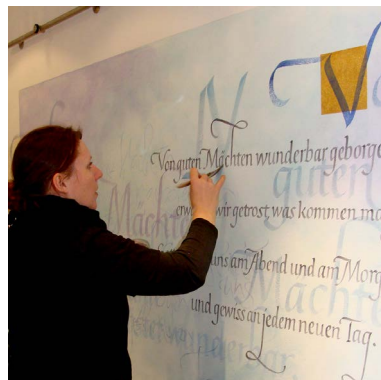 V
Von guten Mächten wunderbar geborge
wir getrost, was kommen ma
uns am Abend und am Morg
und gewiss an jedem neuen Tag.
guten
Mächten
Mächte
wunderbar